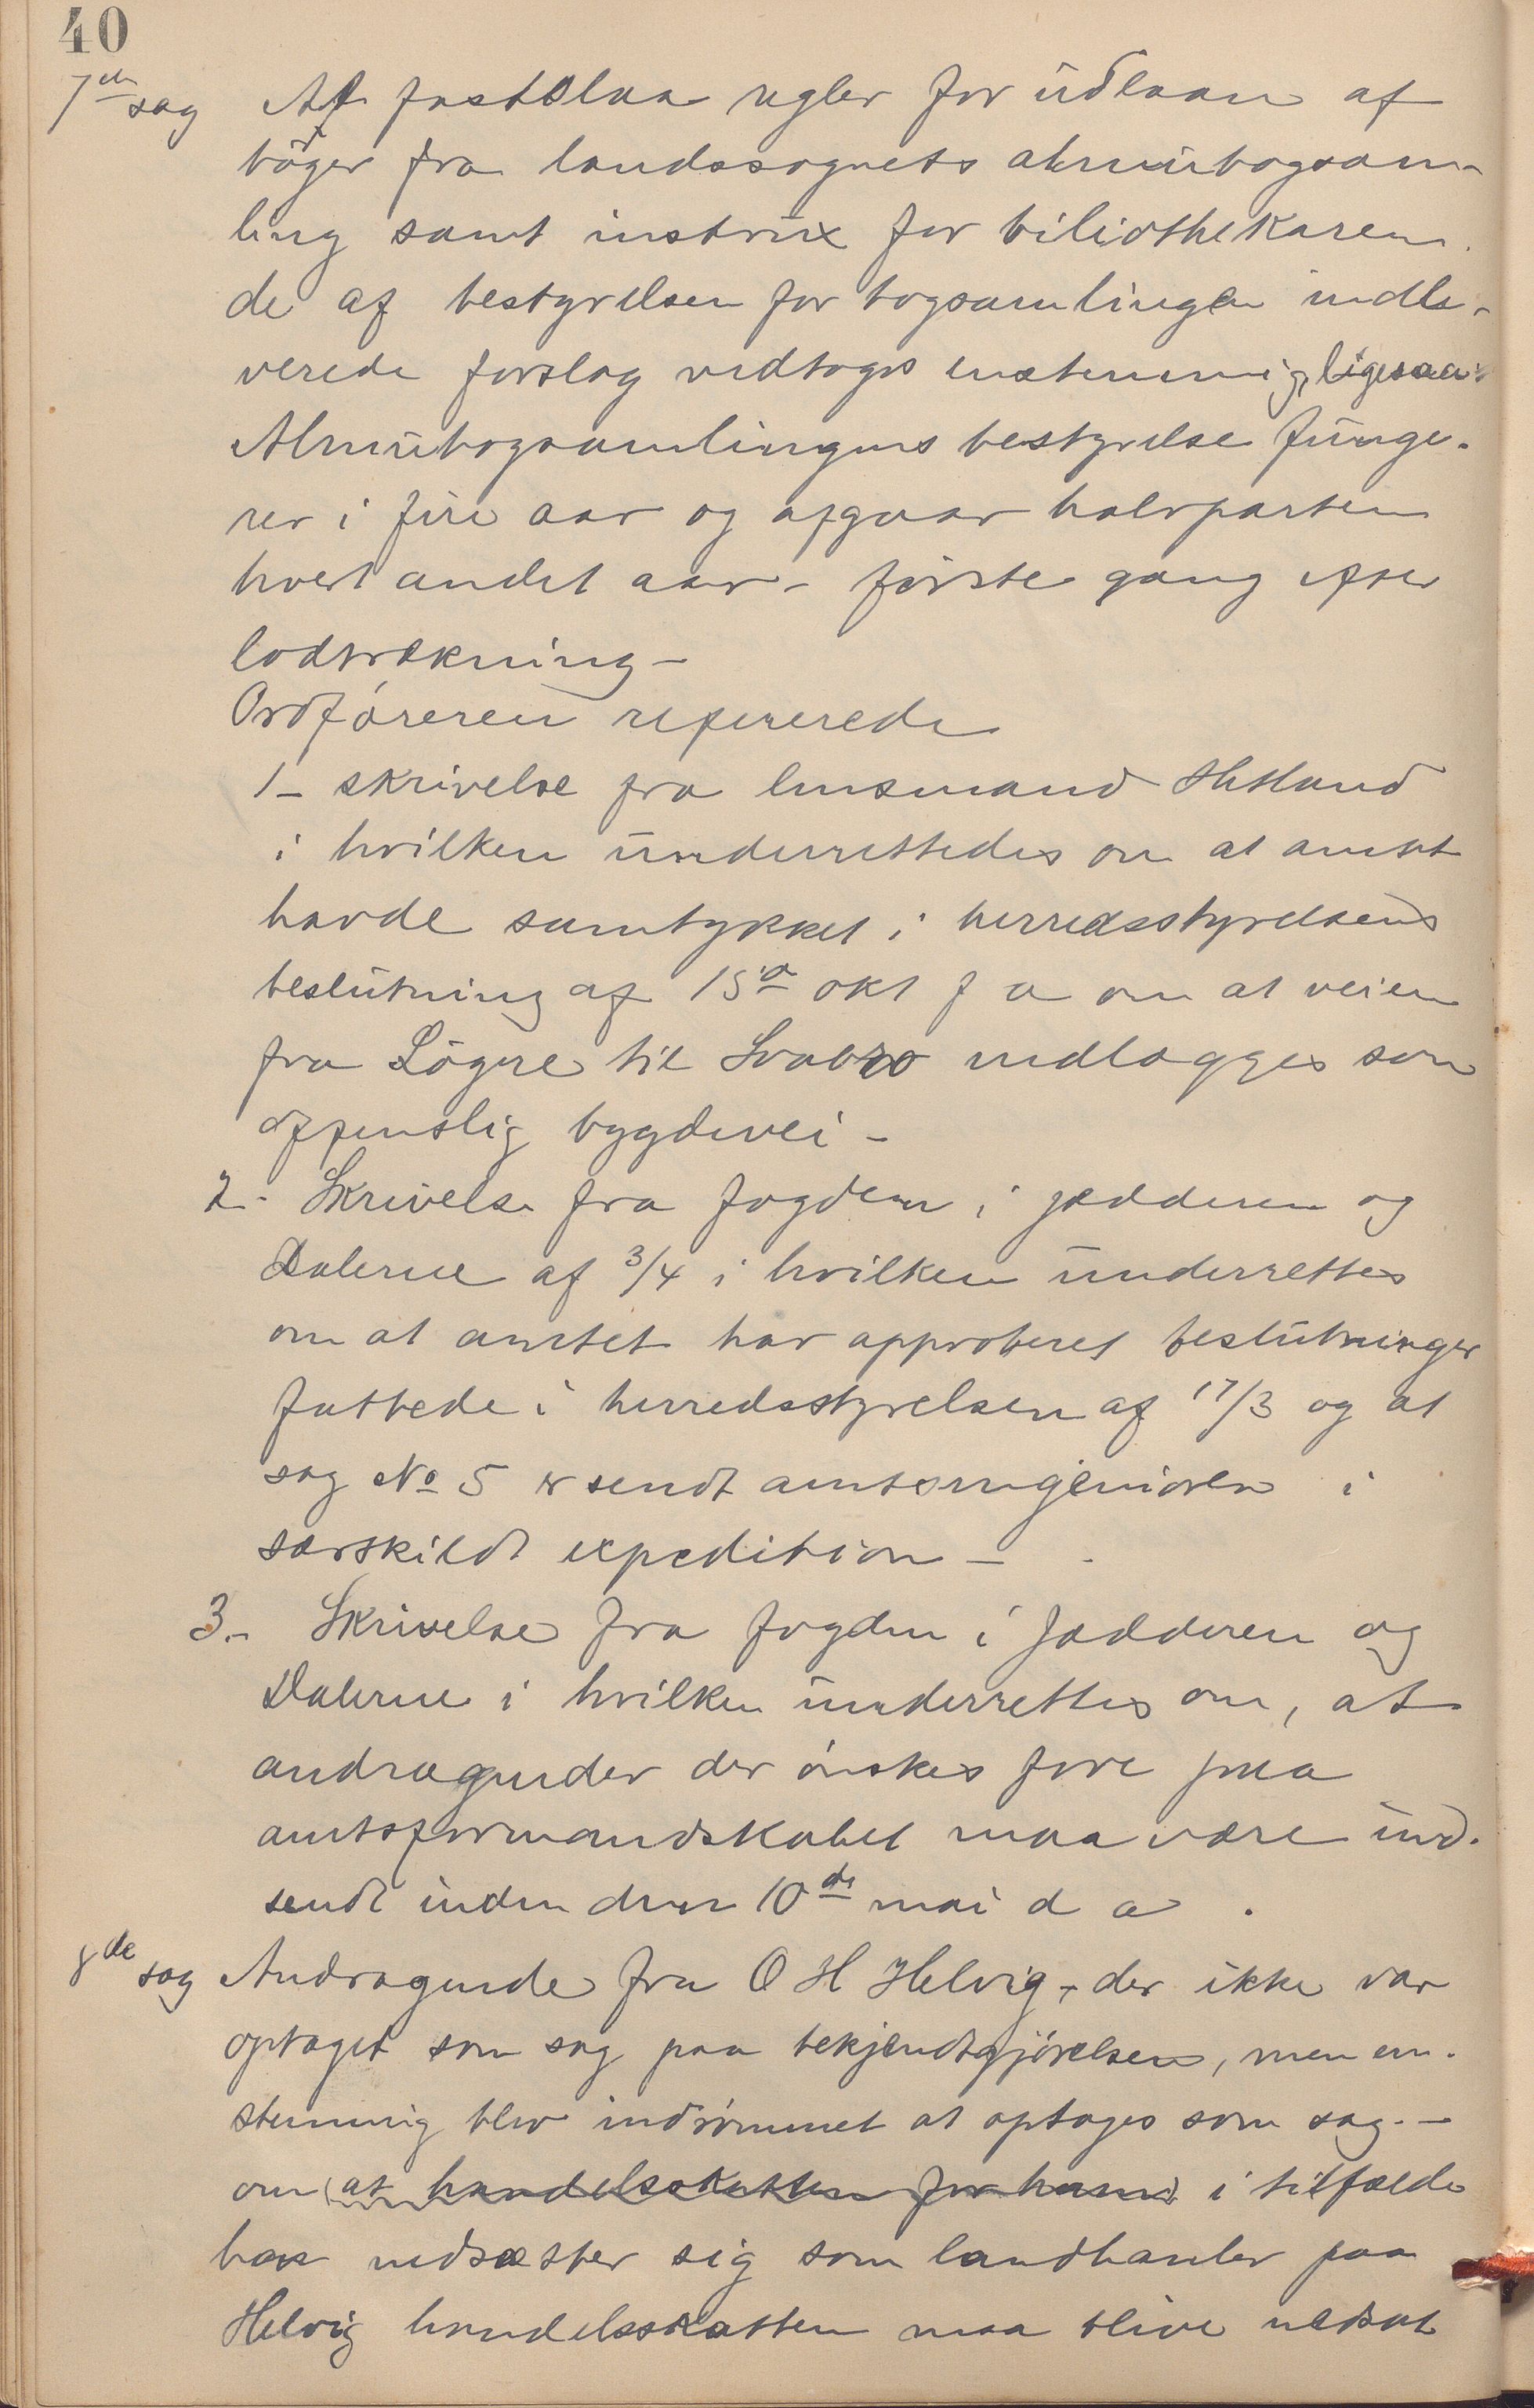 40
7de sag At fastslaa regler for udlaan af
bøger fra landssognets almuebogsam-
ling samt instrux for biliothekaren.
de af bestyrelsen for bogsamlingen indle-
verede forslag vedtoges enstemmig, ligesaa:
Almuebogsamlingens bestyrelse funge-
rer i fire aar og afgaar halvparten
hvert andet aar – første gang efter
lodtrækning –
Ordføreren refererede
1– skrivelse fra lensmand Hetland
i hvilken underrettedes om at amtet
havde samtykket i herredsstyrelsens
beslutning af 15de okt f a om at veien
fra Løgre til nedlægges som
offentlig bygdevei –
2– Skrivelse fra fogden i jædderen og
Dalerne af 3/4 i hvilken underrettes
om at amtet har approberet beslutninger
fattede i herredsstyrelsen af 17/3 og at
sag No 5 er sendt amtsingeniøren i
særskildt expedition –
3.– Skrivelse fra fogden i Jædderen og
Dalerne i hvilken underrettes om, at
andragender der ønskes fore paa
amtsformandskabet maa være ind-
sendt inden den 10de mai d a .
8de sag Andragende fra O H Helvig, der ikke var
optaget som sag paa bekjendtgjørelsen, men en-
stemmig blev indrømmet at optages som sag. –
om (at handelsskatten for ham) i tilfælde
han nedsætter sig som landhanler paa
Helvig handelsskatten maa blive nedsat